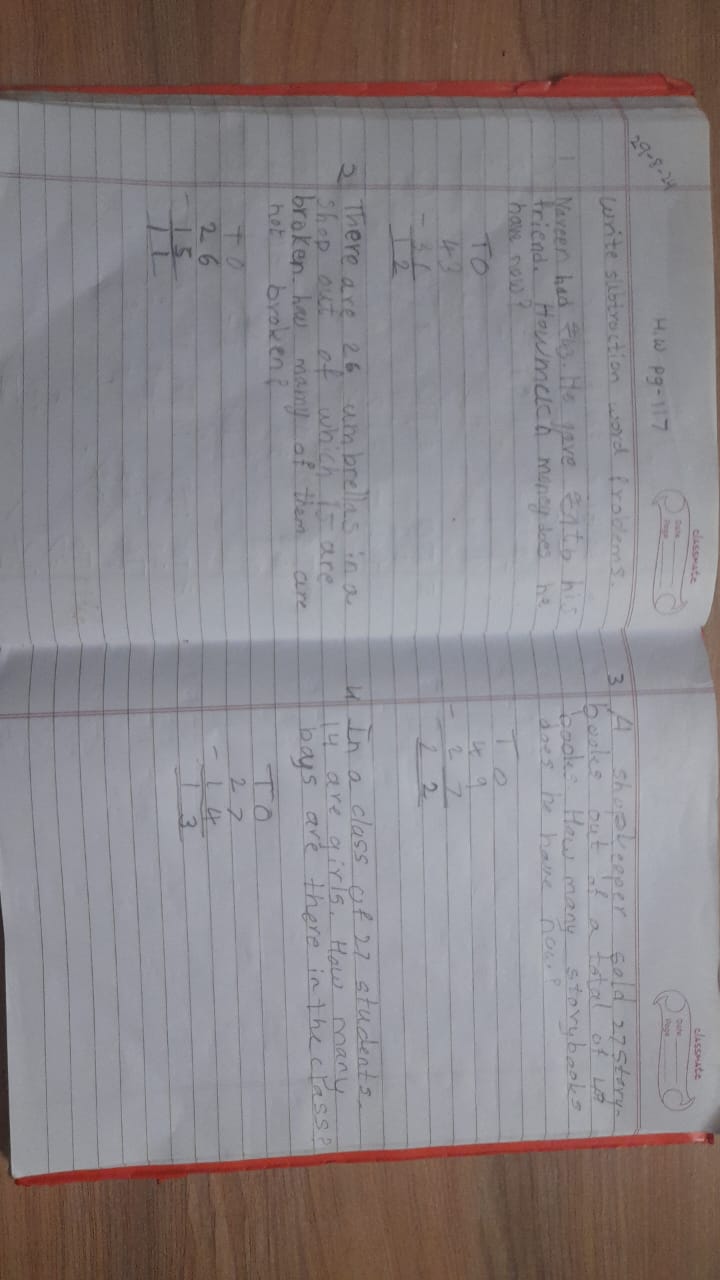 classmate
Date
Page
29-8-24
H.W Pg-117
Write subtraction word problems.
1 Naveen had ₹43. He gave ₹31 to his
friend. Howmuch money does he
have now?
T O
4 3
- 3 1
1 2
2 There are 26 umbrellas in a
shop out of which 15 are
broken how many of them are
not broken?
T O
2 6
- 1 5
1 1
classmate
Date
Page
3 A shopkeeper sold 27 story-
books out of a total of 49
books. How many storybooks
does he have now?
T O
4 9
- 2 7
2 2
4 In a class of 27 students.
14 are girls. How many
boys are there in the class?
T O
2 7
- 1 4
1 3